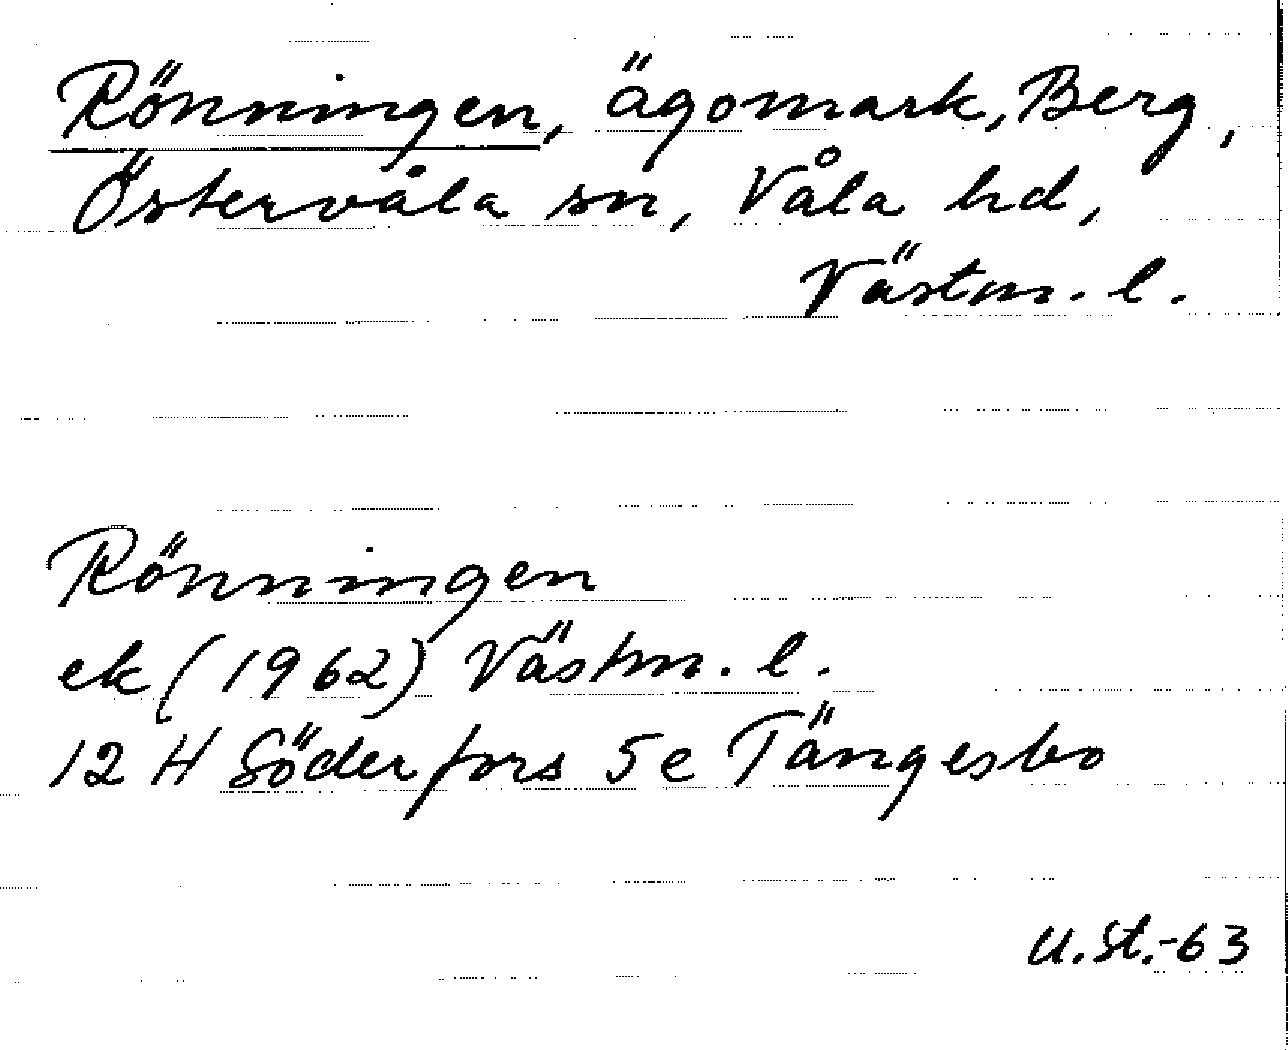 Rönningen, ägomark, Berg,
Östervåla sn, Våla hd,
Västm. l.
Rönningen
ek (1962) Västm. l.
12 H Söderfors 5 e Tängesbo
U.St.-63